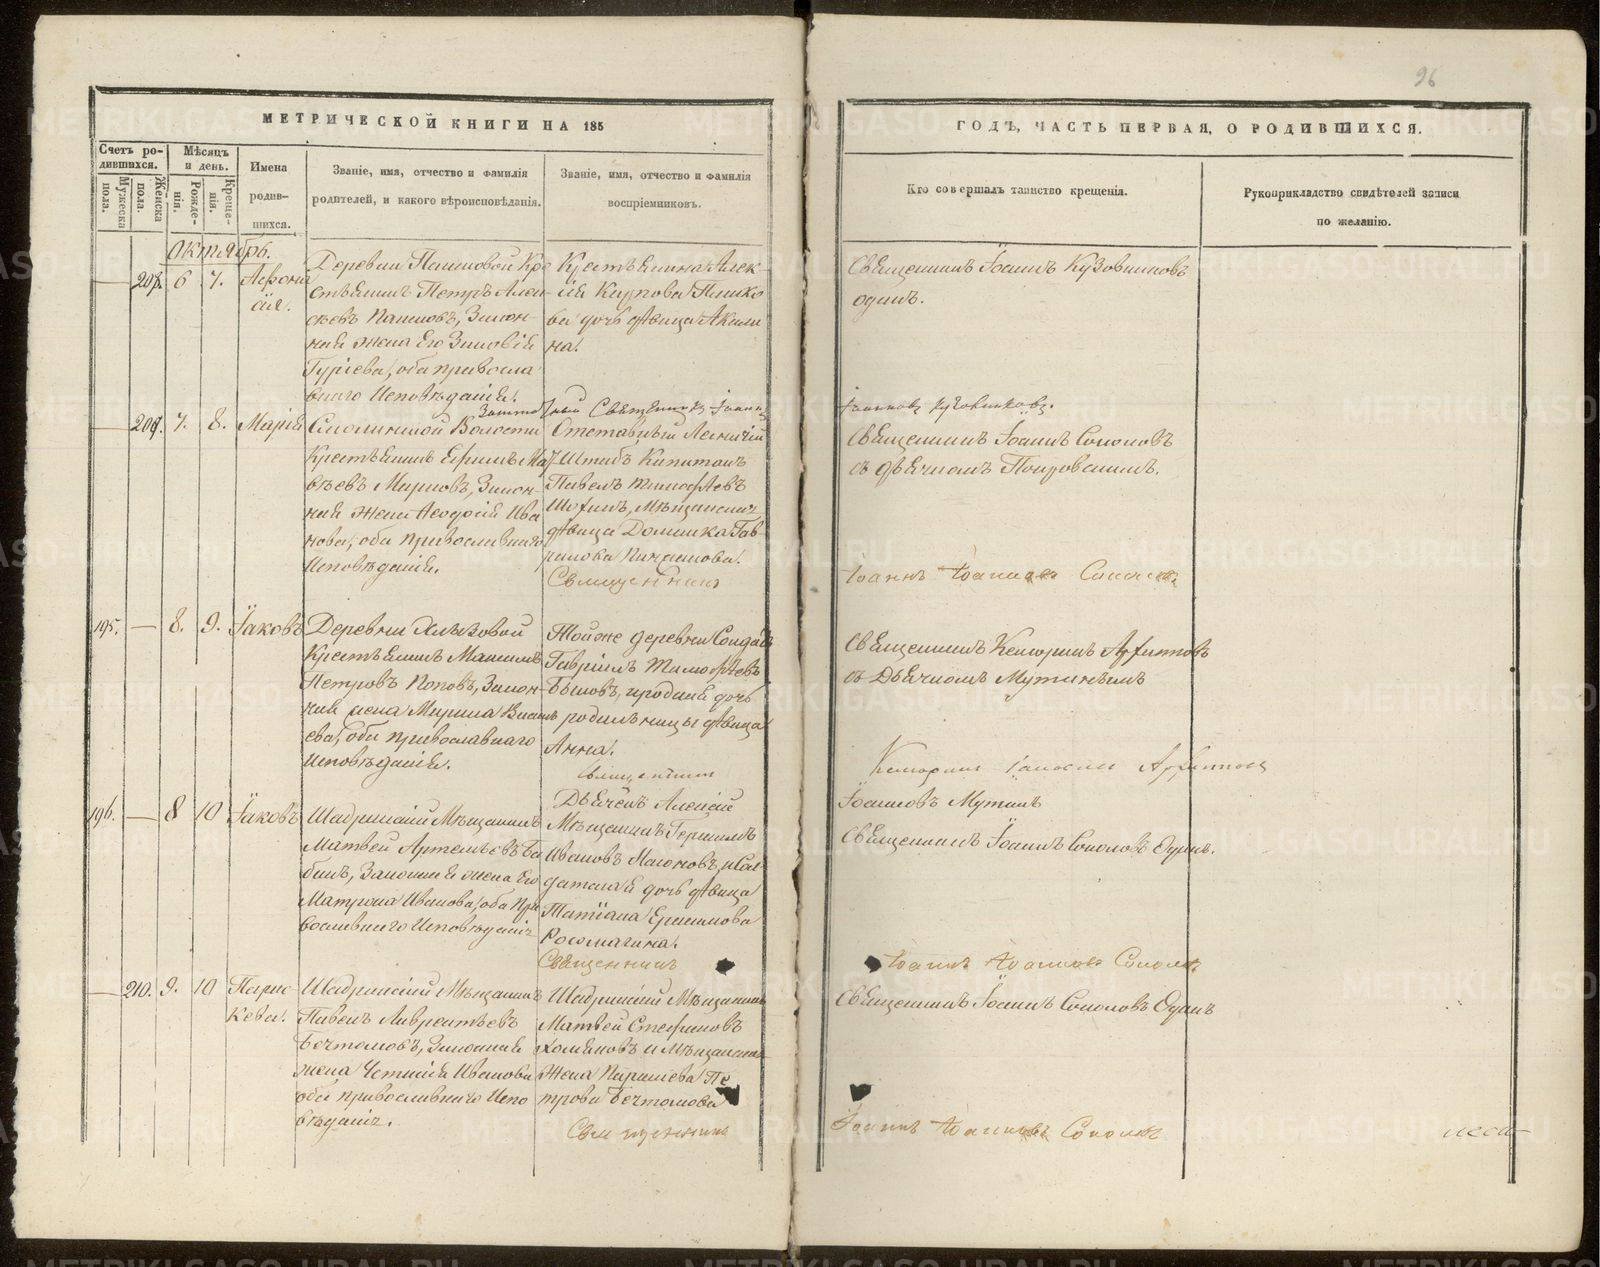 96
МЕТРИЧЕСКОЙ КНИГИ НА 185
ГОДЪ, ЧАСТЬ ПЕРВАЯ, О РОДИВШИХСЯ.
Счетъ ро-
дившихся.
Мужеска
пола.
Женска
пола.
Мѣсяцъ
и день.
Рожде-
нія.
Креще-
нія.
Имена
родив-
шихся.
Званіе, имя, отчество и фамилія
родителей, и какого вѣроисповѣданія.
Званіе, имя, отчество и фамилія
воспріемниковъ.
Кто совершалъ таинство крещенія.
Рукоприкладство свидѣтелей записи
по желанію.
Октябрь.
208. 6 7.
Деревни Кре
стьянинъ Петръ Алек
сѣевъ Закон
ная жена Его Зиновія
Гуріева, оба правосла
внаго Исповѣданія.
Крестьянина Алек
сѣя Карпова
ва дочь дѣвица Акили
на.
Священникъ Іоаннъ Кузовниковъ
одинъ.
Священникъ Іоаннъ
Іоанновъ Кузовниковъ.
209. 7. 8. Марія
Смолинской Волости
Крестьянинъ Ефимъ Мат
вѣевъ Марковъ, Закон
ная жена Ѳеодосія Ива
нова, оба православнаго
Исповѣданія.
Отставный Лесничій
Штабъ Капитанъ
Павелъ Тимоѳѣевъ
Мѣщанская
дѣвица Домника Гав
рилова
Священникъ
Священникъ Іоаннъ Соколовъ
съ дьячкомъ Покровскимъ.
Іоаннъ Іоанновъ Соколовъ
195. — 8. 9. Іаковъ
Деревни Хлызовой
Крестьянинъ Максимъ
Петровъ Поповъ, Закон
ная жена Марина Василь
ева, оба православнаго
Исповѣданія.
Той же деревни Солдатъ
Гавріилъ Тимоѳѣевъ
Быковъ, и родная дочь
родильницы дѣвица
Анна.
Священникъ
Священникъ Кесарій
съ Дьячкомъ Мутинымъ
Дьячекъ Алексій
Іоанновъ Мутинъ
196. — 8 10 Іаковъ
Шадринскій Мѣщанинъ
Матвей Артемьевъ Ба
бинъ, Законная жена Его
Матрона Иванова, оба Пра
вославнаго Исповѣданія
Мѣщанинъ Герасимъ
Ивановъ и Сол
датская дочь дѣвица
Татіана
Росомагина.
Священникъ
Священникъ Іоаннъ Соколовъ Одинъ.
Іоаннъ Іоанновъ Соколовъ
— 210. 9. 10 Парас
кева.
Шадринскій Мѣщанинъ
Павелъ Лаврентьевъ
Бехтомовъ, Законная
жена Иванова
оба православнаго Испо
вѣданія.
Шадринскій Мѣщанинъ
Матвей Стефановъ
Хомяковъ и Мѣщанская
Жена Параскева Пе
трова Бехтомова
Священникъ
Священникъ Іоаннъ Соколовъ Одинъ
Іоаннъ Іоанновъ Соколовъ
METRIKI.GASO-URAL.RU